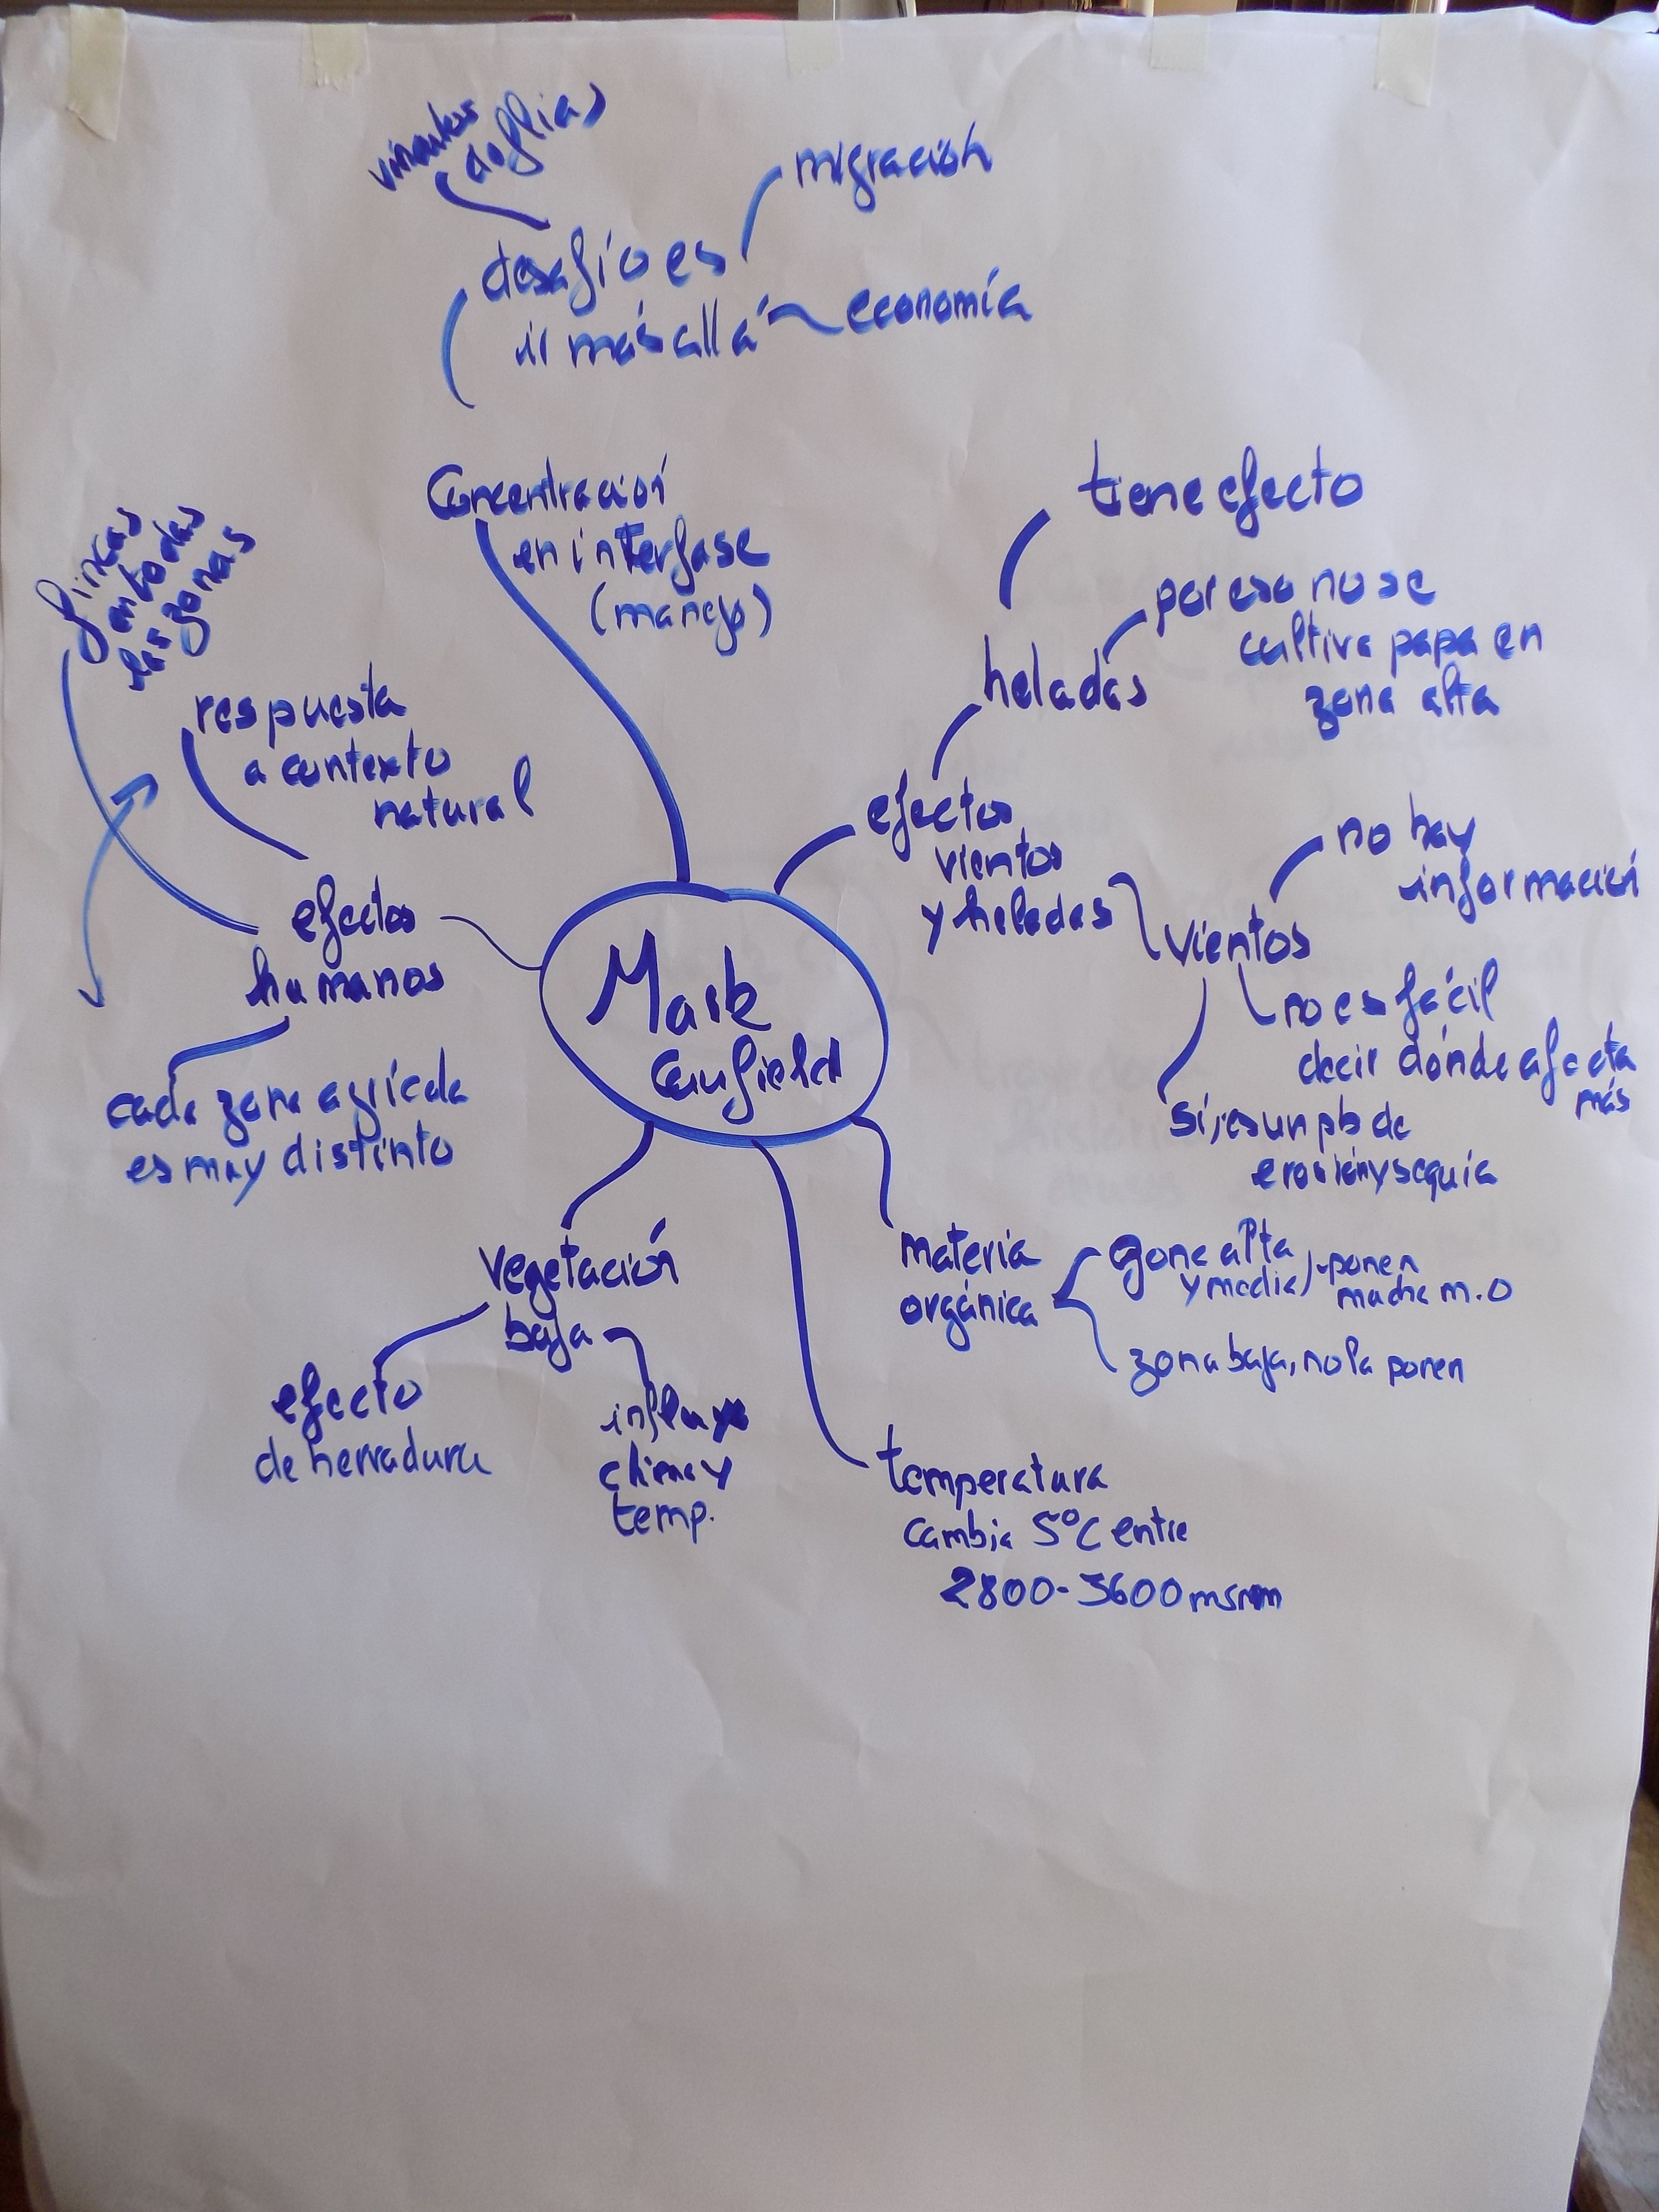 vínculos
de flias
migración
desafío es
ir más allá
economía
Concentración
en interfase
(manejo)
tiene efecto
por eso no se
cultiva papa en
zona alta
heladas
fincas
en todas
las zonas
respuesta
a contexto
natural
efectos
vientos
y heladas
no hay
información
vientos
no es fácil
decir dónde afecta
más
sí, es un pb de
erosión y sequía
efectos
humanos
cada zona agrícola
es muy distinto
Mark
Caufield
vegetación
baja
efecto
de herradura
influye
clima y
temp.
materia
orgánica
zona alta
y media, ponen
mucha m.o
zona baja, no la ponen
temperatura
cambia 5°C entre
2800-3600 msnm